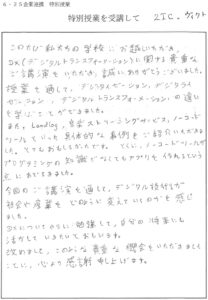 6・25企業連携 特別授業
特別授業を受講して 2IC. ヴィクト
この度は私たちの学校にお越しいただき、
DX(デジタルトランスフォーメーション)に関する貴重な
ご講演をいただき、誠にありがとうございました。
授業を通して、デジタイゼーション、デジタライ
ゼーション、デジタルトランスフォーメーションの違い
を学ぶことができました。
また、Landlog、音楽ストリーミングサービス、ノーコード
ツールといった具体的な事例をご紹介いただき
ました。とてもおもしろかったです。とくに、ノーコードツールが
プログラミングの知識がなくてもアプリを作れるという
点におどろきました。
今回のご講演を通して、デジタル技術が
社会や産業をどのように変えていくのかを感じ
ました。
DXについてのらに勉強して、自分の将来にも
活かしていきたいとおもいます。
改めまして、このような貴重な機会をいただきましたこ
とに、心より感謝申し上げます。